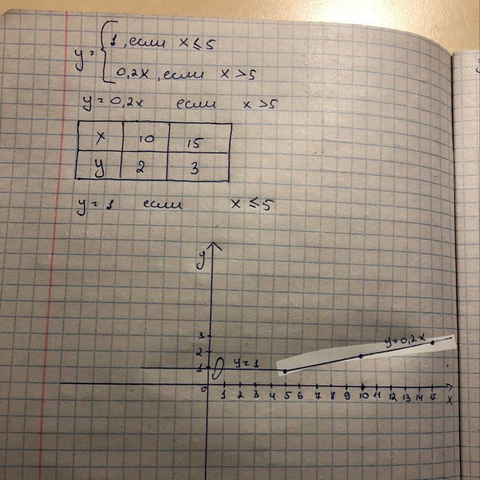 y = { 1, если x ≤ 5
0,2x, если x > 5
y = 0,2x если x > 5
x 10 15
y 2 3
y = 1 если x ≤ 5
y
3
2
1
y = 1
y = 0,2x
0 1 2 3 4 5 6 7 8 9 10 11 12 13 14 15 x